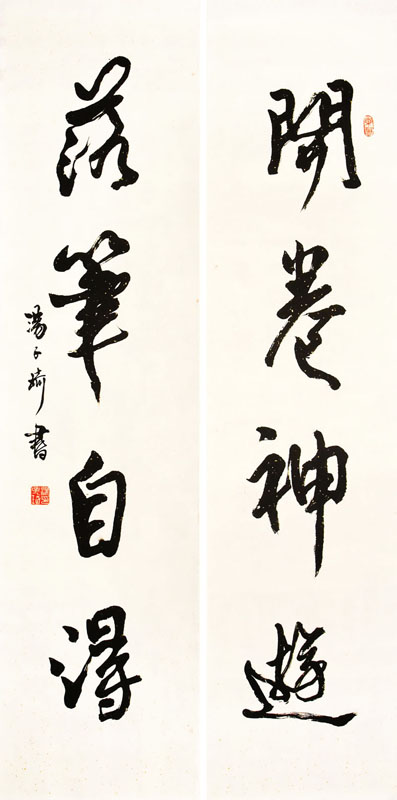 開卷神遊
落筆自得
湯子琦書